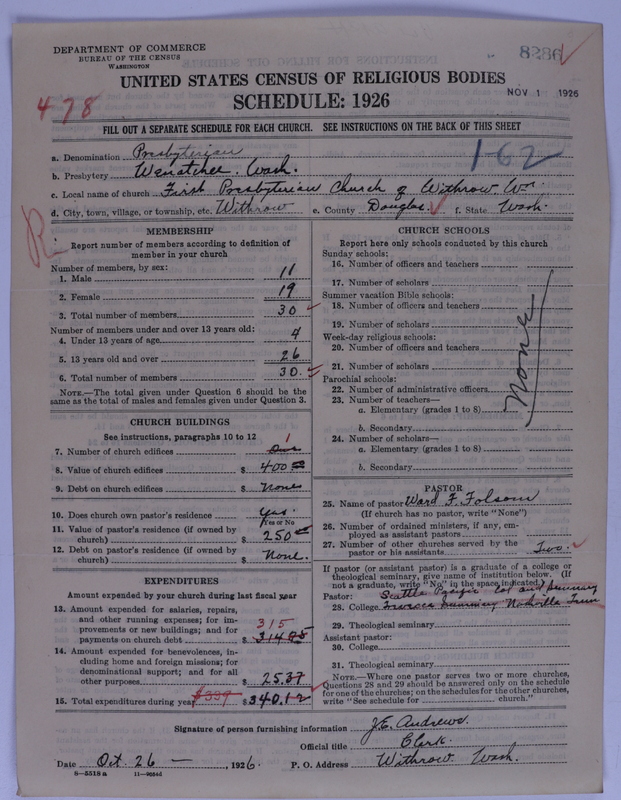 DEPARTMENT OF COMMERCE
BUREAU OF THE CENSUS
WASHINGTON
8286
UNITED STATES CENSUS OF RELIGIOUS BODIES
SCHEDULE: 1926
NOV 1 1926
478
FILL OUT A SEPARATE SCHEDULE FOR EACH CHURCH. SEE INSTRUCTIONS ON THE BACK OF THIS SHEET
a. Denomination Presbyterian
162
b. Presbytery Wenatchee. Wash.
c. Local name of church First Presbyterian Church of Withrow Wn.
d. City, town, village, or township, etc. Withrow e. County Douglas f. State Wash.
MEMBERSHIP
Report number of members according to definition of member in your church
Number of members, by sex:
1. Male 11
2. Female 19
3. Total number of members 30
Number of members under and over 13 years old:
4. Under 13 years of age 4
5. 13 years old and over 26
6. Total number of members 30.
NOTE.—The total given under Question 6 should be the same as the total of males and females given under Question 3.
CHURCH BUILDINGS
See instructions, paragraphs 10 to 12
1
7. Number of church edifices One
8. Value of church edifices $ 400 00
9. Debt on church edifices $ None
10. Does church own pastor's residence Yes.
(Yes or No)
11. Value of pastor's residence (if owned by church) $ 250 00
12. Debt on pastor's residence (if owned by church) $ None.
EXPENDITURES
Amount expended by your church during last fiscal year
13. Amount expended for salaries, repairs, and other running expenses; for improvements or new buildings; and for payments on church debt $ 314 75
315
14. Amount expended for benevolences, including home and foreign missions; for denominational support; and for all other purposes $ 25.37
15. Total expenditures during year $339 $ 340.12
CHURCH SCHOOLS
Report here only schools conducted by this church
Sunday schools:
16. Number of officers and teachers
17. Number of scholars
Summer vacation Bible schools:
18. Number of officers and teachers
19. Number of scholars
Week-day religious schools:
20. Number of officers and teachers
21. Number of scholars
Parochial schools:
22. Number of administrative officers
23. Number of teachers—
a. Elementary (grades 1 to 8)
b. Secondary
24. Number of scholars—
a. Elementary (grades 1 to 8)
b. Secondary
None
PASTOR
25. Name of pastor Ward F. Folsom
(If church has no pastor, write "None")
26. Number of ordained ministers, if any, employed as assistant pastors
27. Number of other churches served by the pastor or his assistants Two.
If pastor (or assistant pastor) is a graduate of a college or theological seminary, give name of institution below. (If not a graduate, write "No" in the space indicated.)
Pastor: Seattle Pacific Col and Seminary
28. College
29. Theological seminary
Assistant pastor:
30. College
31. Theological seminary
NOTE.—Where one pastor serves two or more churches, Questions 28 and 29 should be answered only on the schedule for one of the churches; on the schedules for the other churches, write "See schedule for ... church."
Signature of person furnishing information J.E. Andrews
Official title Clerk.
Date Oct 26 —, 1926. P. O. Address Withrow Wash.
8—5518 a